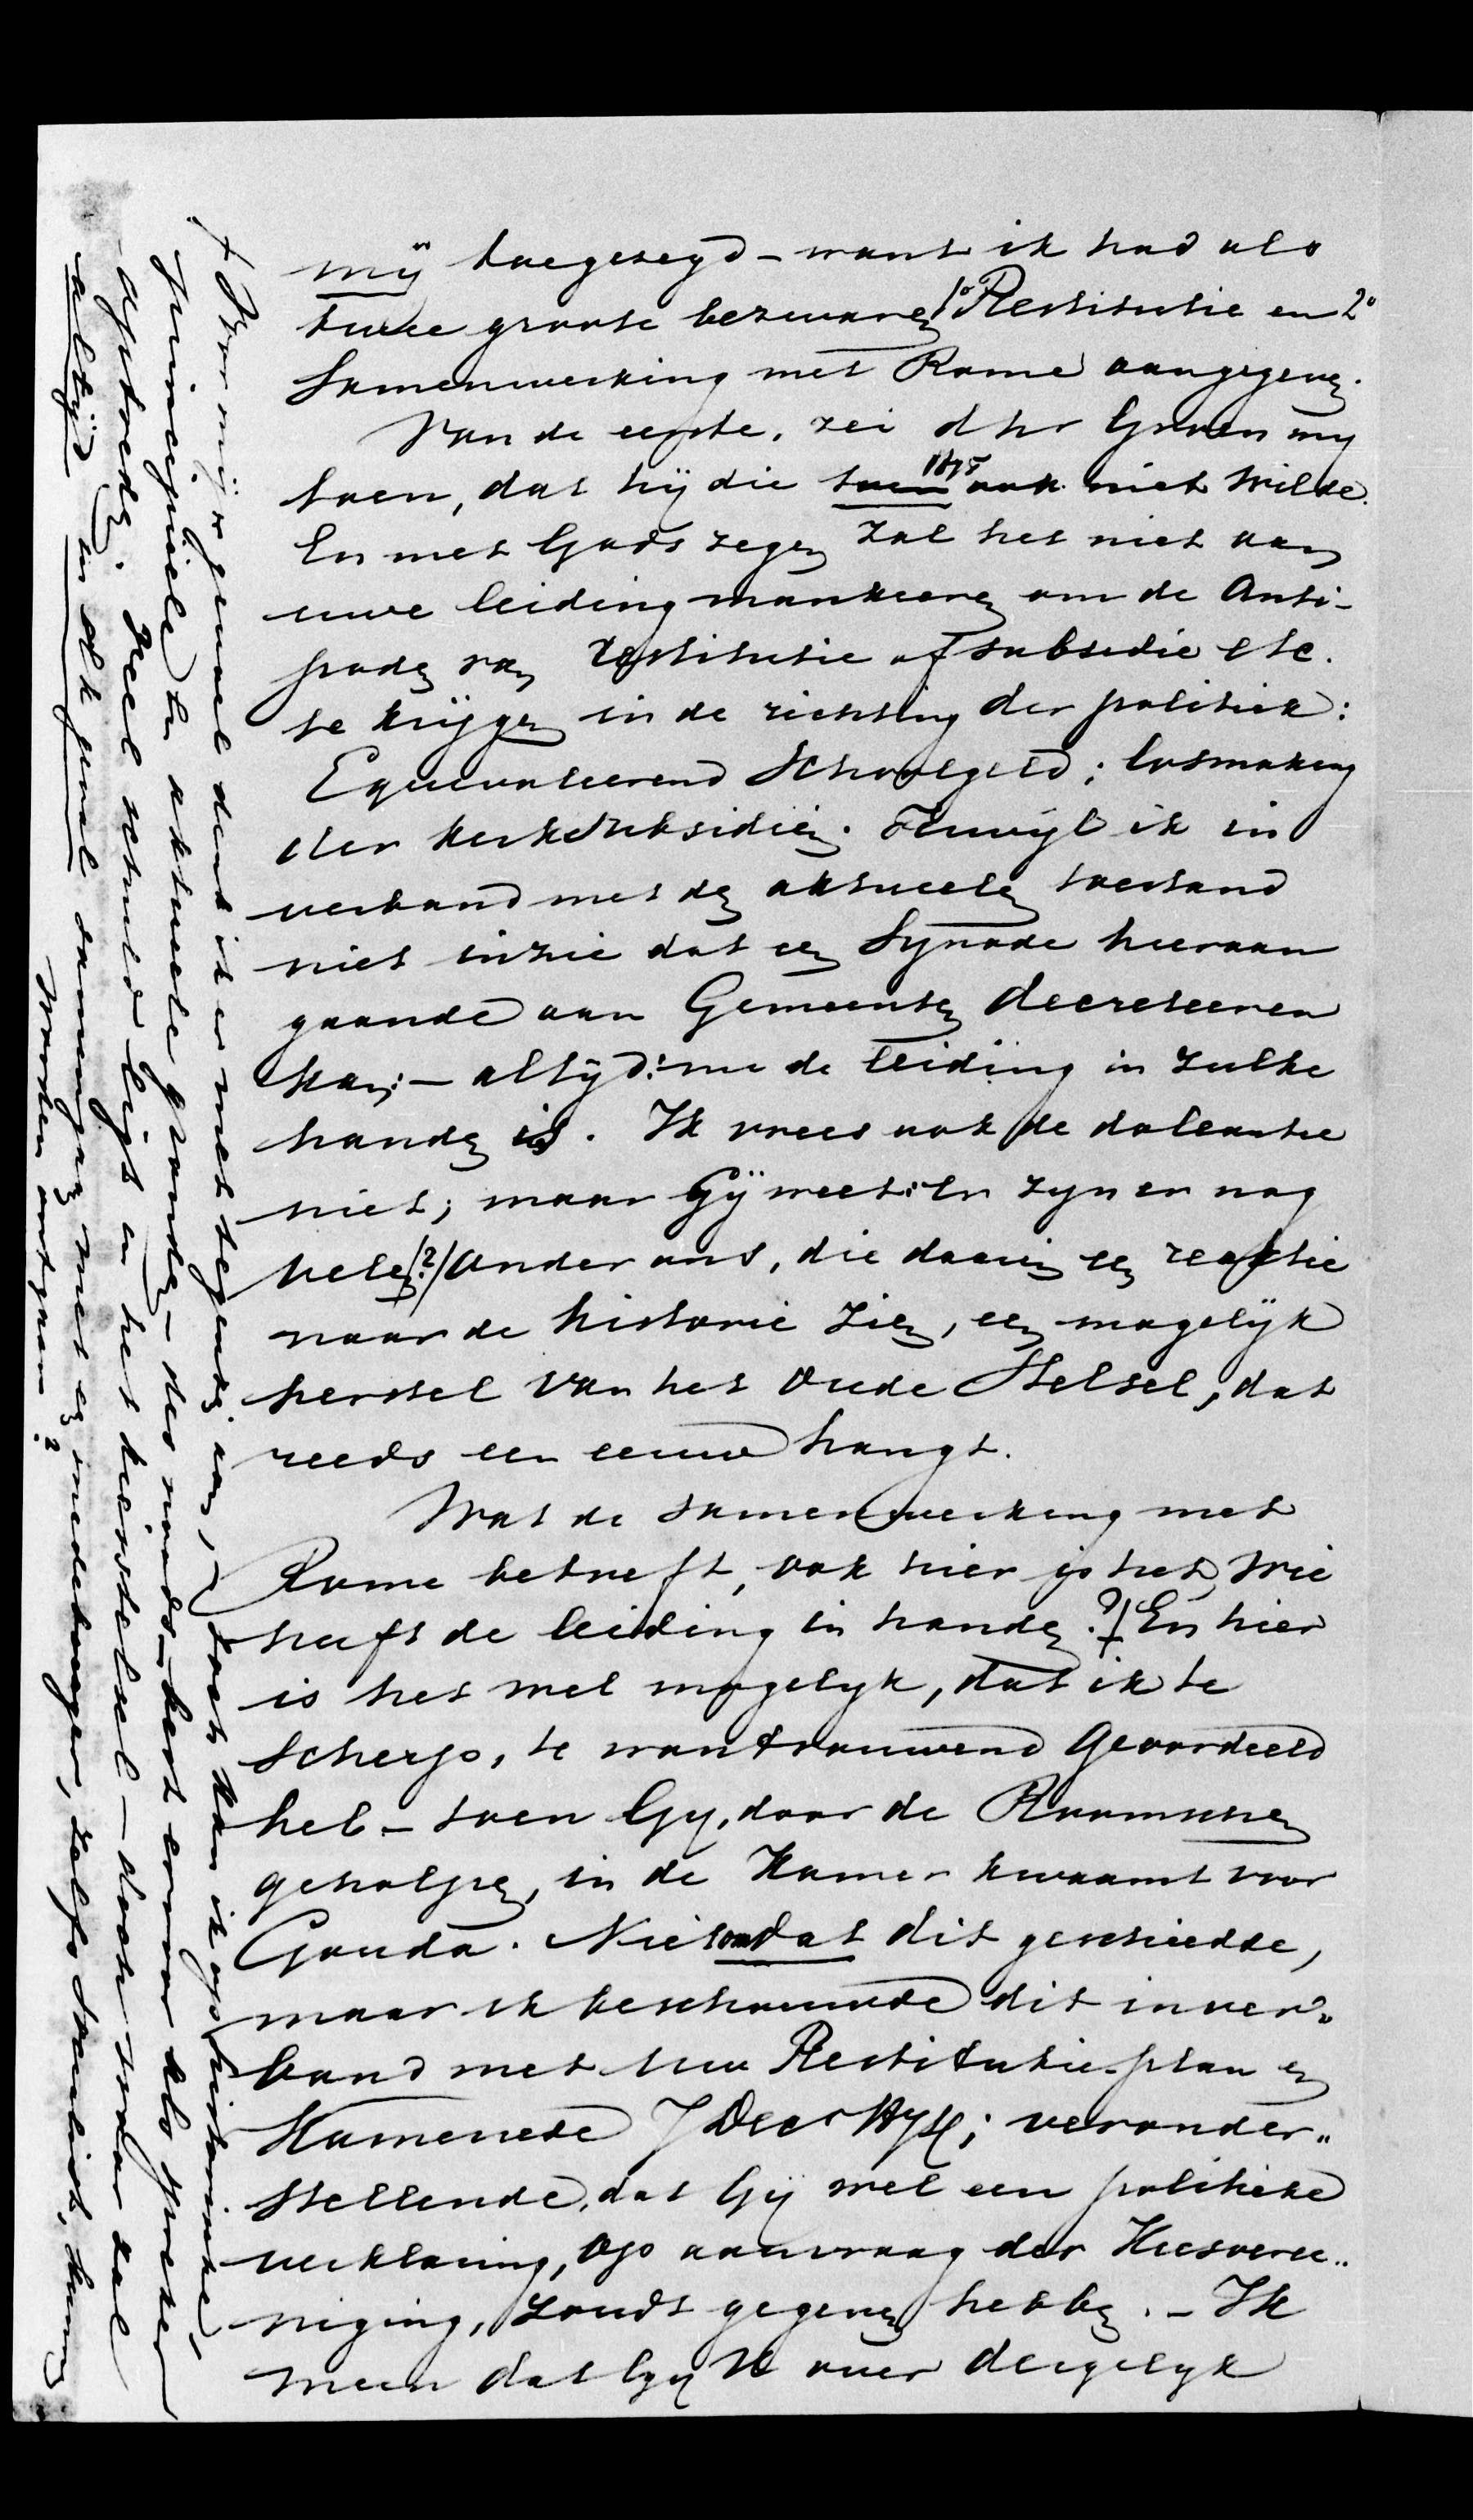 mij toegezegd – want ik had als
twee groote bezwaren 1° Restitutie en 2°
Samenwerking met Rome aangegeven.
Van de eerste, zei dhr Groen my
toen, dat hij die toen 1875 ook niet wilde.
En met Gods zegen zal het niet aan
uwe leiding mankeeren om de Anti-
pode van restitutie of subsidie etc.
te krijgen in de richting der politiek:
Equivaleerend Schoolgeld; losmaking
der kerksubsidien. Terwijl ik in
verband met den aktueelen toestand
niet inzie dat een Synode hieraan
gaande aan Gemeenten decreteeren
kan; – altijd: nu de leiding in zulke
handen is. Ik vrees ook de doleantie
niet; maar Gij weet: Er zyn er nog
velen (?) onder ons, die daarin een reactie
naar de historie zien, een mogelijk
herstel van het Oude Stelsel, dat
reeds een eeuw hangt.
Wat de samenwerking met
Rome betreft, ook hier is het, wie
heeft de leiding in handen? † En hier
is het wel mogelyk, dat ik te
scherp, te wantrouwend geoordeeld
heb – toen Gy, door de Roomschen
geholpen, in de Kamer kwaamt voor
Gouda. Niet omdat dit geschiedde,
maar ik beschouwde dit in ver„
band met uw Restitutie-plan en
Kamerrede; veronder„
stellende, dat Gij wel een politieke
verklaring, op aanvraag der Kiesveree„
niging, zoudt gegeven hebben. – Ik
meen dat Gij U over dergelyk
† Voor mij persoonlijk ik er niet tegen, doch kan ik op historische,
principieele en aktueele gronden – des noods – best ervoor als spreker
optreden. Veel schuld ligt in het kiesstelsel – doch
altijd in elk geval samengaan met een medeburger, zelfs socialist, kunnen
worden ontgaan?